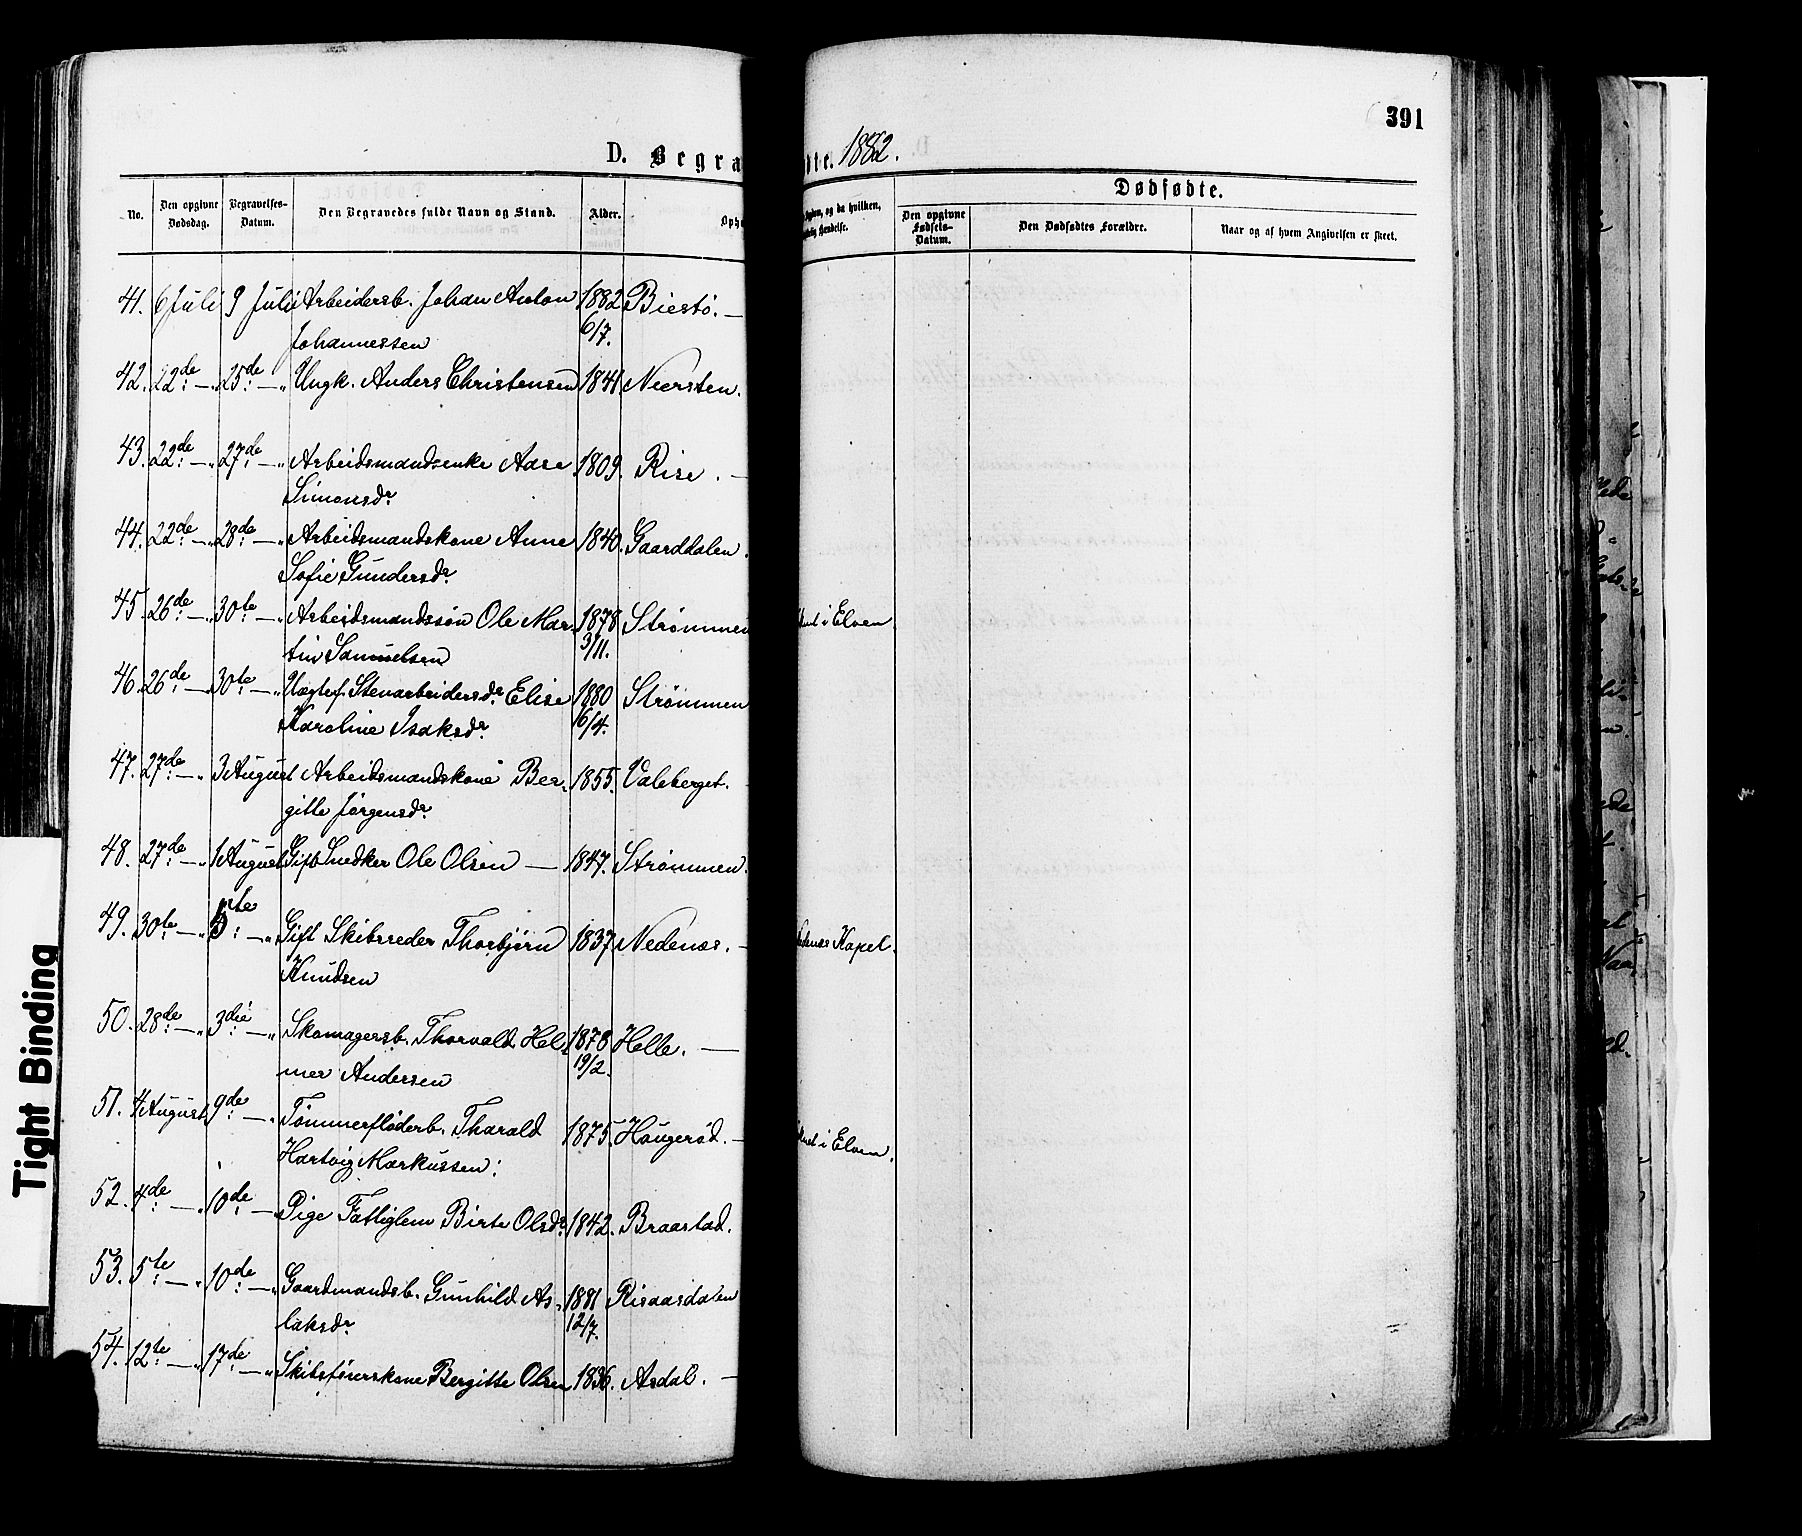 391
D. Begra
dte. 1882.
Dødfødte.
No.
Den opgivne Dødsdag.
Begravelses-Datum.
Den Begravedes fulde Navn og Stand.
Alder.
Opho
Sygdom, og da hvilken,
Hændelse.
Den opgivne Fødsels-Datum.
Den Dødfødtes Forældre.
Naar og af hvem Angivelsen er skeet.
41. 6 Juli 9 Juli Arbeidersb. Johan Anton 1882 Biestø. —
Johannessen 6/7.
42. 22de: —„ 25de: —„ Ungk. Anders Christensen 1841 Niersten.
43. 22de: —„ 27de: —„ Arbeidsmandsenke Aase 1809. Rise. —
Simonsdr.
44. 22de: —„ 28de: —„ Arbeidsmandskone Anne 1840. Gaarddalen.
Sofie Gundersdr.
45. 26de: —„ 30te: —„ Arbeidsmandssøn Ole Mar- 1878 Strømmen i Elven.
tin Samuelsen 3/11.
46. 26de: —„ 30te: —„ Uægtef. Stenarbeidersdr. Elise 1880 Strømmen
Karoline Isaksdr. 6/4.
47. 27de: —„ 3 August Arbeidsmandskone Ber- 1855. Valeberget.
gitte Jørgensdr.
48. 27de: —„ 1 August Gift Snedker Ole Olsen — 1847. Strømmen.
49. 30te: —„ 5te: —„ Gift Skibsreder Thorbjørn 1837 Nedenæs. — Kapel.
Knudsen
50. 28de: —„ 3die: —„ Skomagersb. Thorvald Hel- 1878 Helle. —
mer Andersen 19/2.
51. 4 August 9de: —„ Tømmerfløderb. Tharald 1875. Haugerød. — i Elven.
Hartvig Markussen.
52. 4de: —„ 10de: —„ Pige Fattiglem Birte Olsdr. 1842. Braastad.
53. 5te: —„ 10de: —„ Gaardmandsb. Gunhild As- 1881 Risaasdalen
laksdr. 12/7.
54. 12te: —„ 17de: —„ Skibsførerskone Bergitte Olsen 1836. Asdal. —
Tight Binding